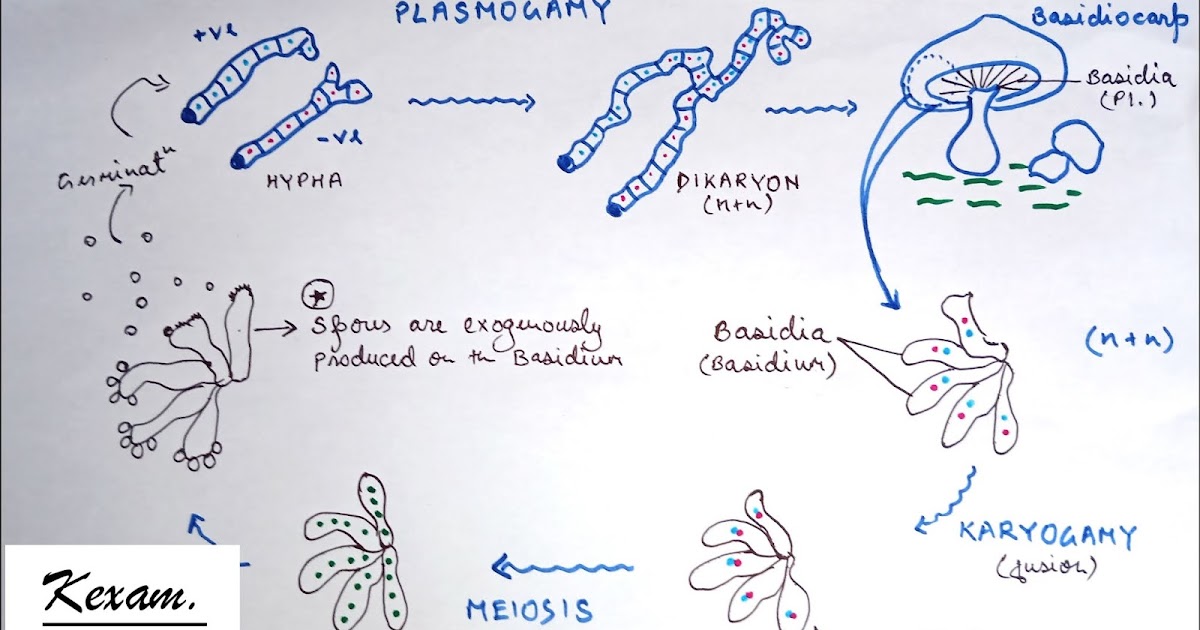 PLASMOGAMY
Basidiocarp
+ve
-ve
HYPHA
DIKARYON
(n+n)
Basidia
(Pl.)
Germinatⁿ
★
Spores are exogenously
produced on th Basidium
Basidia
(Basidium)
(n+n)
KARYOGAMY
(fusion)
MEIOSIS
Kexam.